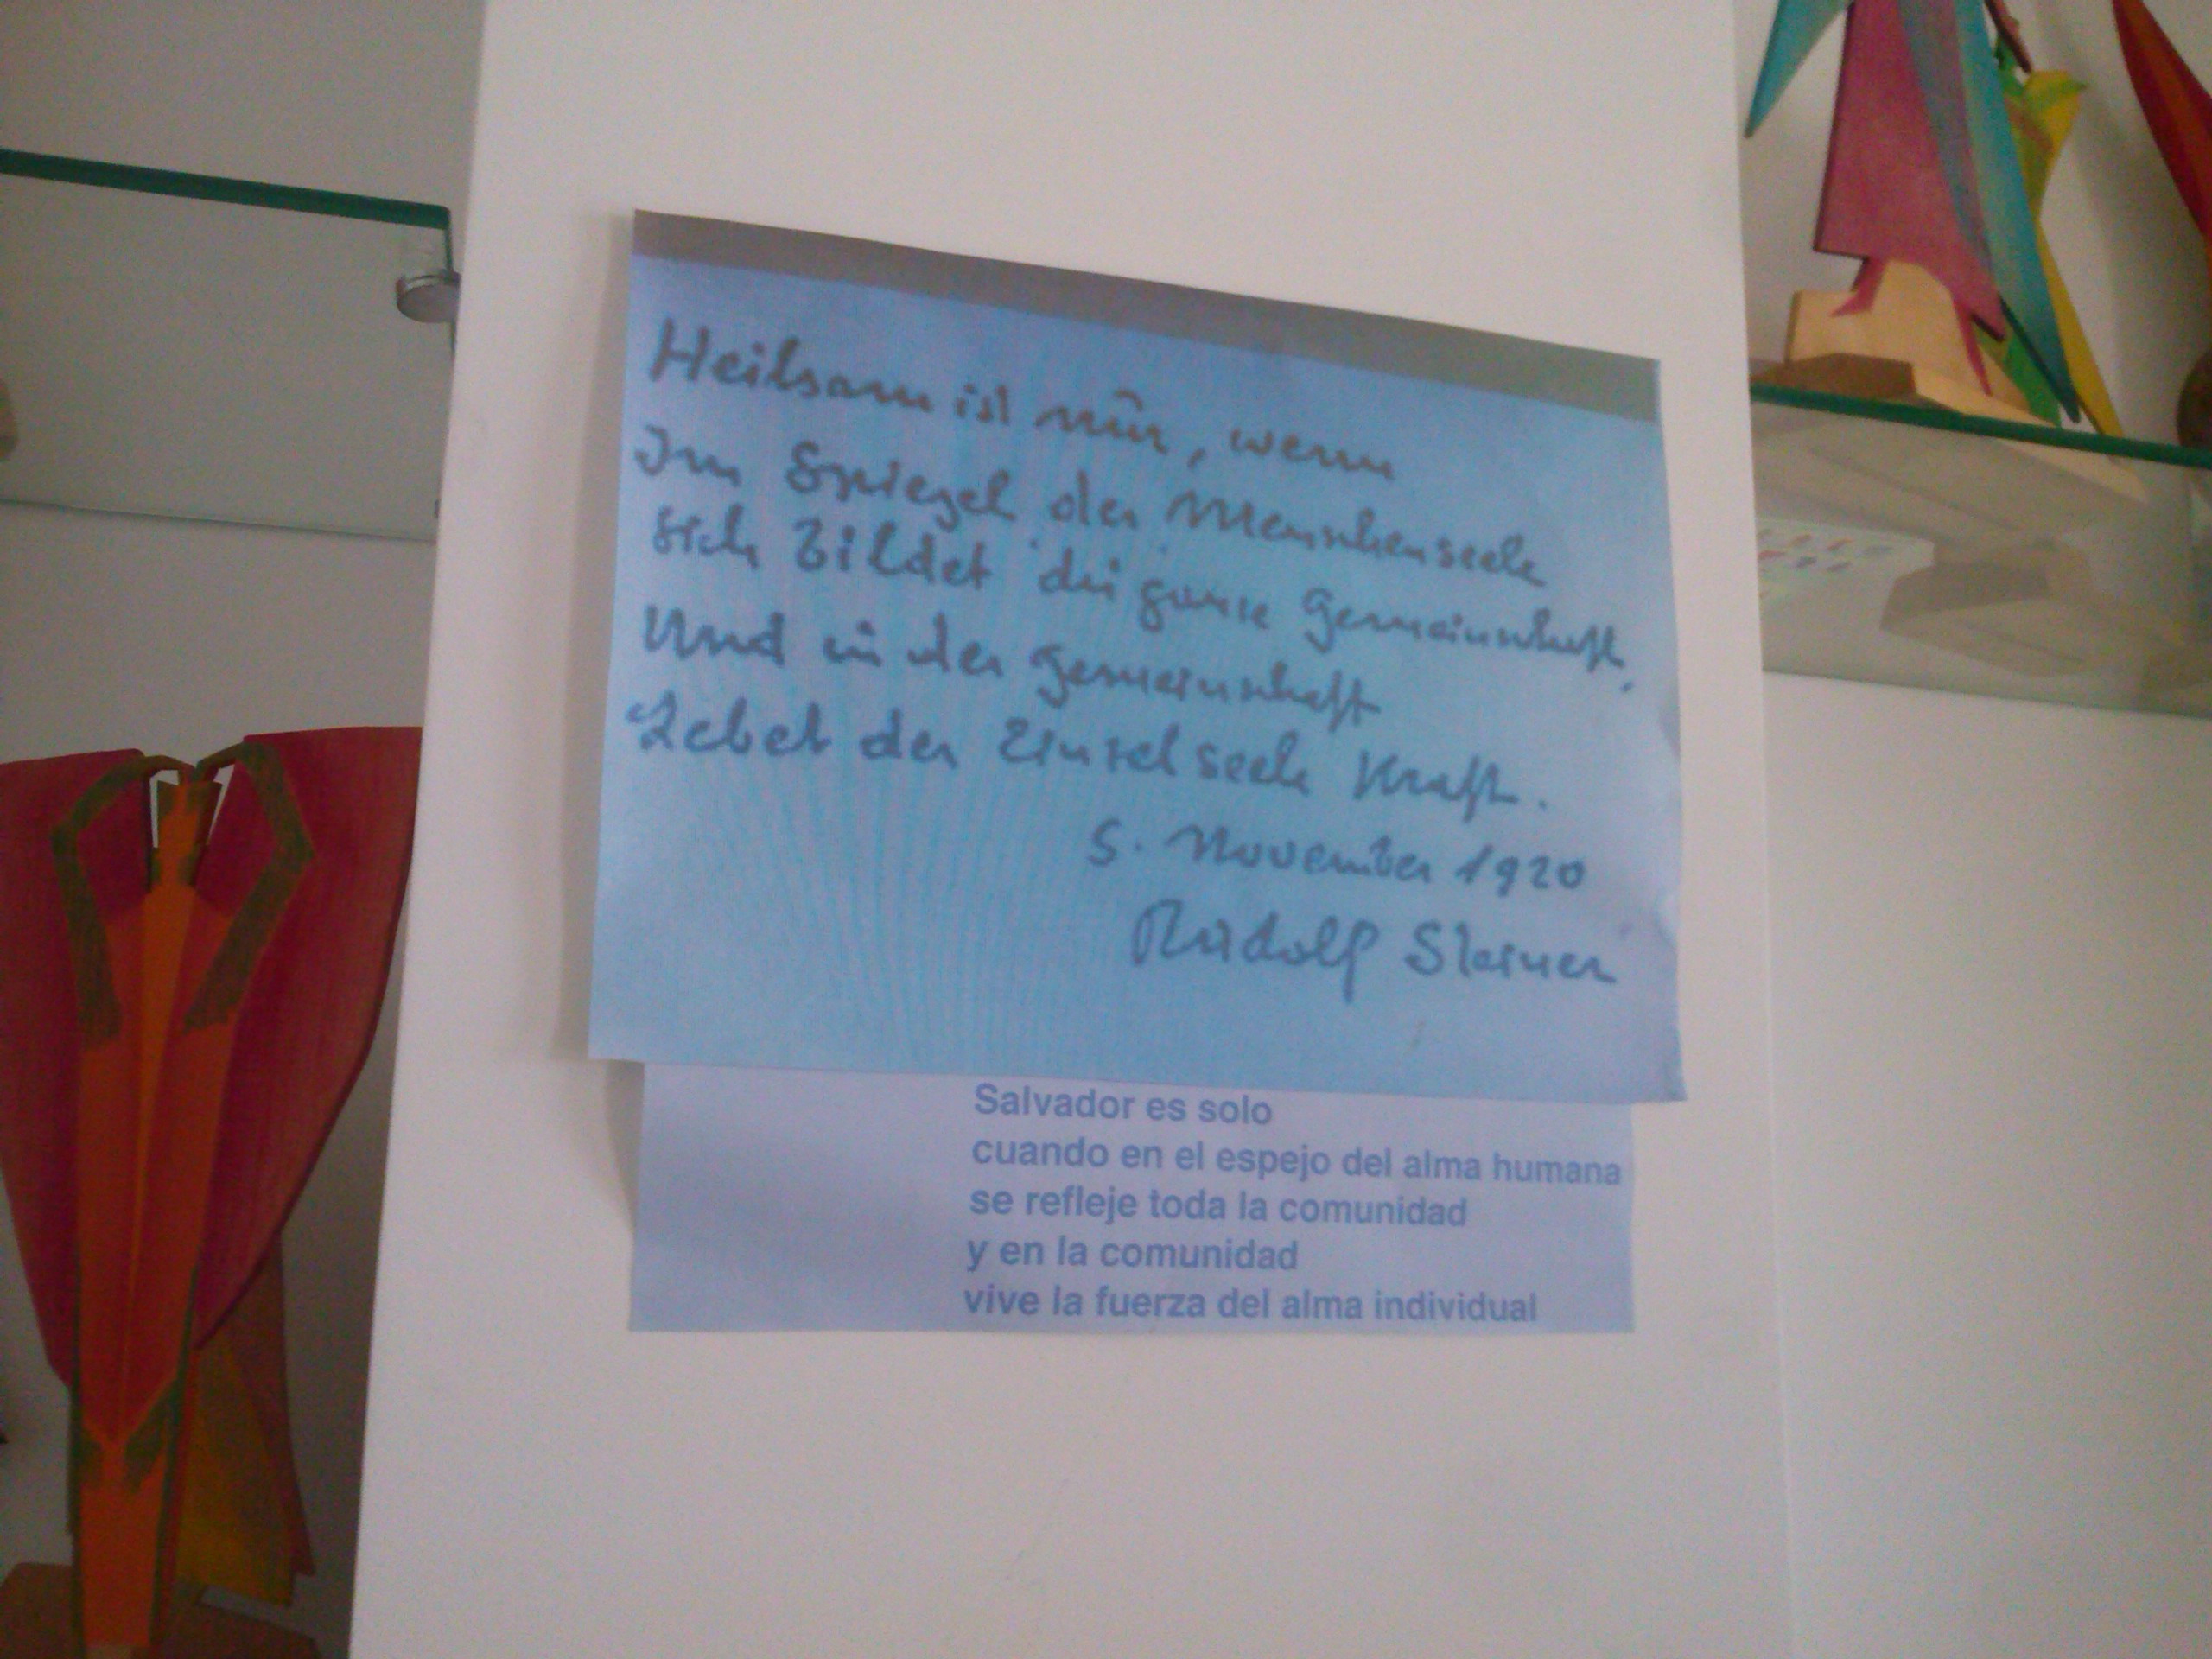 Heilsam ist nur, wenn
Im Spiegel der Menschenseele
Sich bildet die ganze Gemeinschaft,
Und in der Gemeinschaft
Lebet der Einzelseele Kraft.
5. November 1920
Rudolf Steiner
Salvador es solo
cuando en el espejo del alma humana
se refleje toda la comunidad
y en la comunidad
vive la fuerza del alma individual